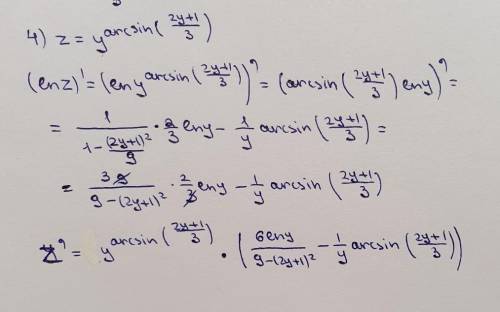 4) z = y^arcsin((2y+1)/3)
(lnz)' = (lny^arcsin((2y+1)/3))' = (arcsin((2y+1)/3) lny)' =
= 1/(1-(2y+1)²/9) · 2/3 lny - 1/y arcsin((2y+1)/3) =
= 3 9/(9-(2y+1)²) · 2/3 lny - 1/y arcsin((2y+1)/3)
z' = y^arcsin((2y+1)/3) · (6lny/(9-(2y+1)²) - 1/y arcsin((2y+1)/3))